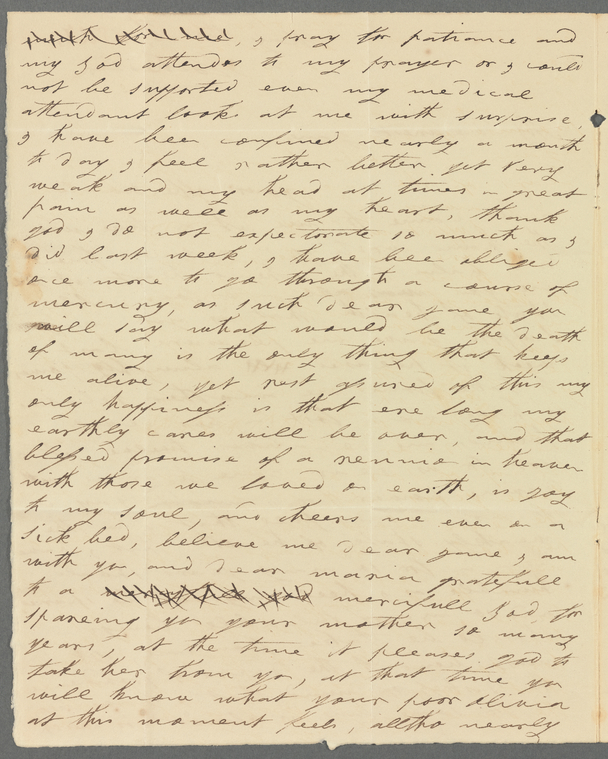 , I pray for patiance and
my God attendes to my prayer or I could
not be supported even my medical
attendant looks at me with surprise,
I have been confined nearly a month
to day I feel rather better yet very
weak and my head at times in great
pain as well as my heart, thank
god I do not expectorate so much as I
did last week, I have bee obliged
once more to go through a course of
mercury, as such dear Jame you
will say what would be the death
of many is the only thing that keeps
me alive, yet rest assured of this my
only happiness is that ere long my
earthly cares will be over, and that
blessed promise of a rennio in heaven
with those we loved on earth, is joy
to my soul, and cheers me even on a
sick bed, believe me dear Jame I am
with you, and dear maria gratefull
to a mercifull God for
spareing you your mother so many
years, at the time it pleases god to
take her from you, at that time you
will know what your poor Olivia
at this moment feels, alltho nearly